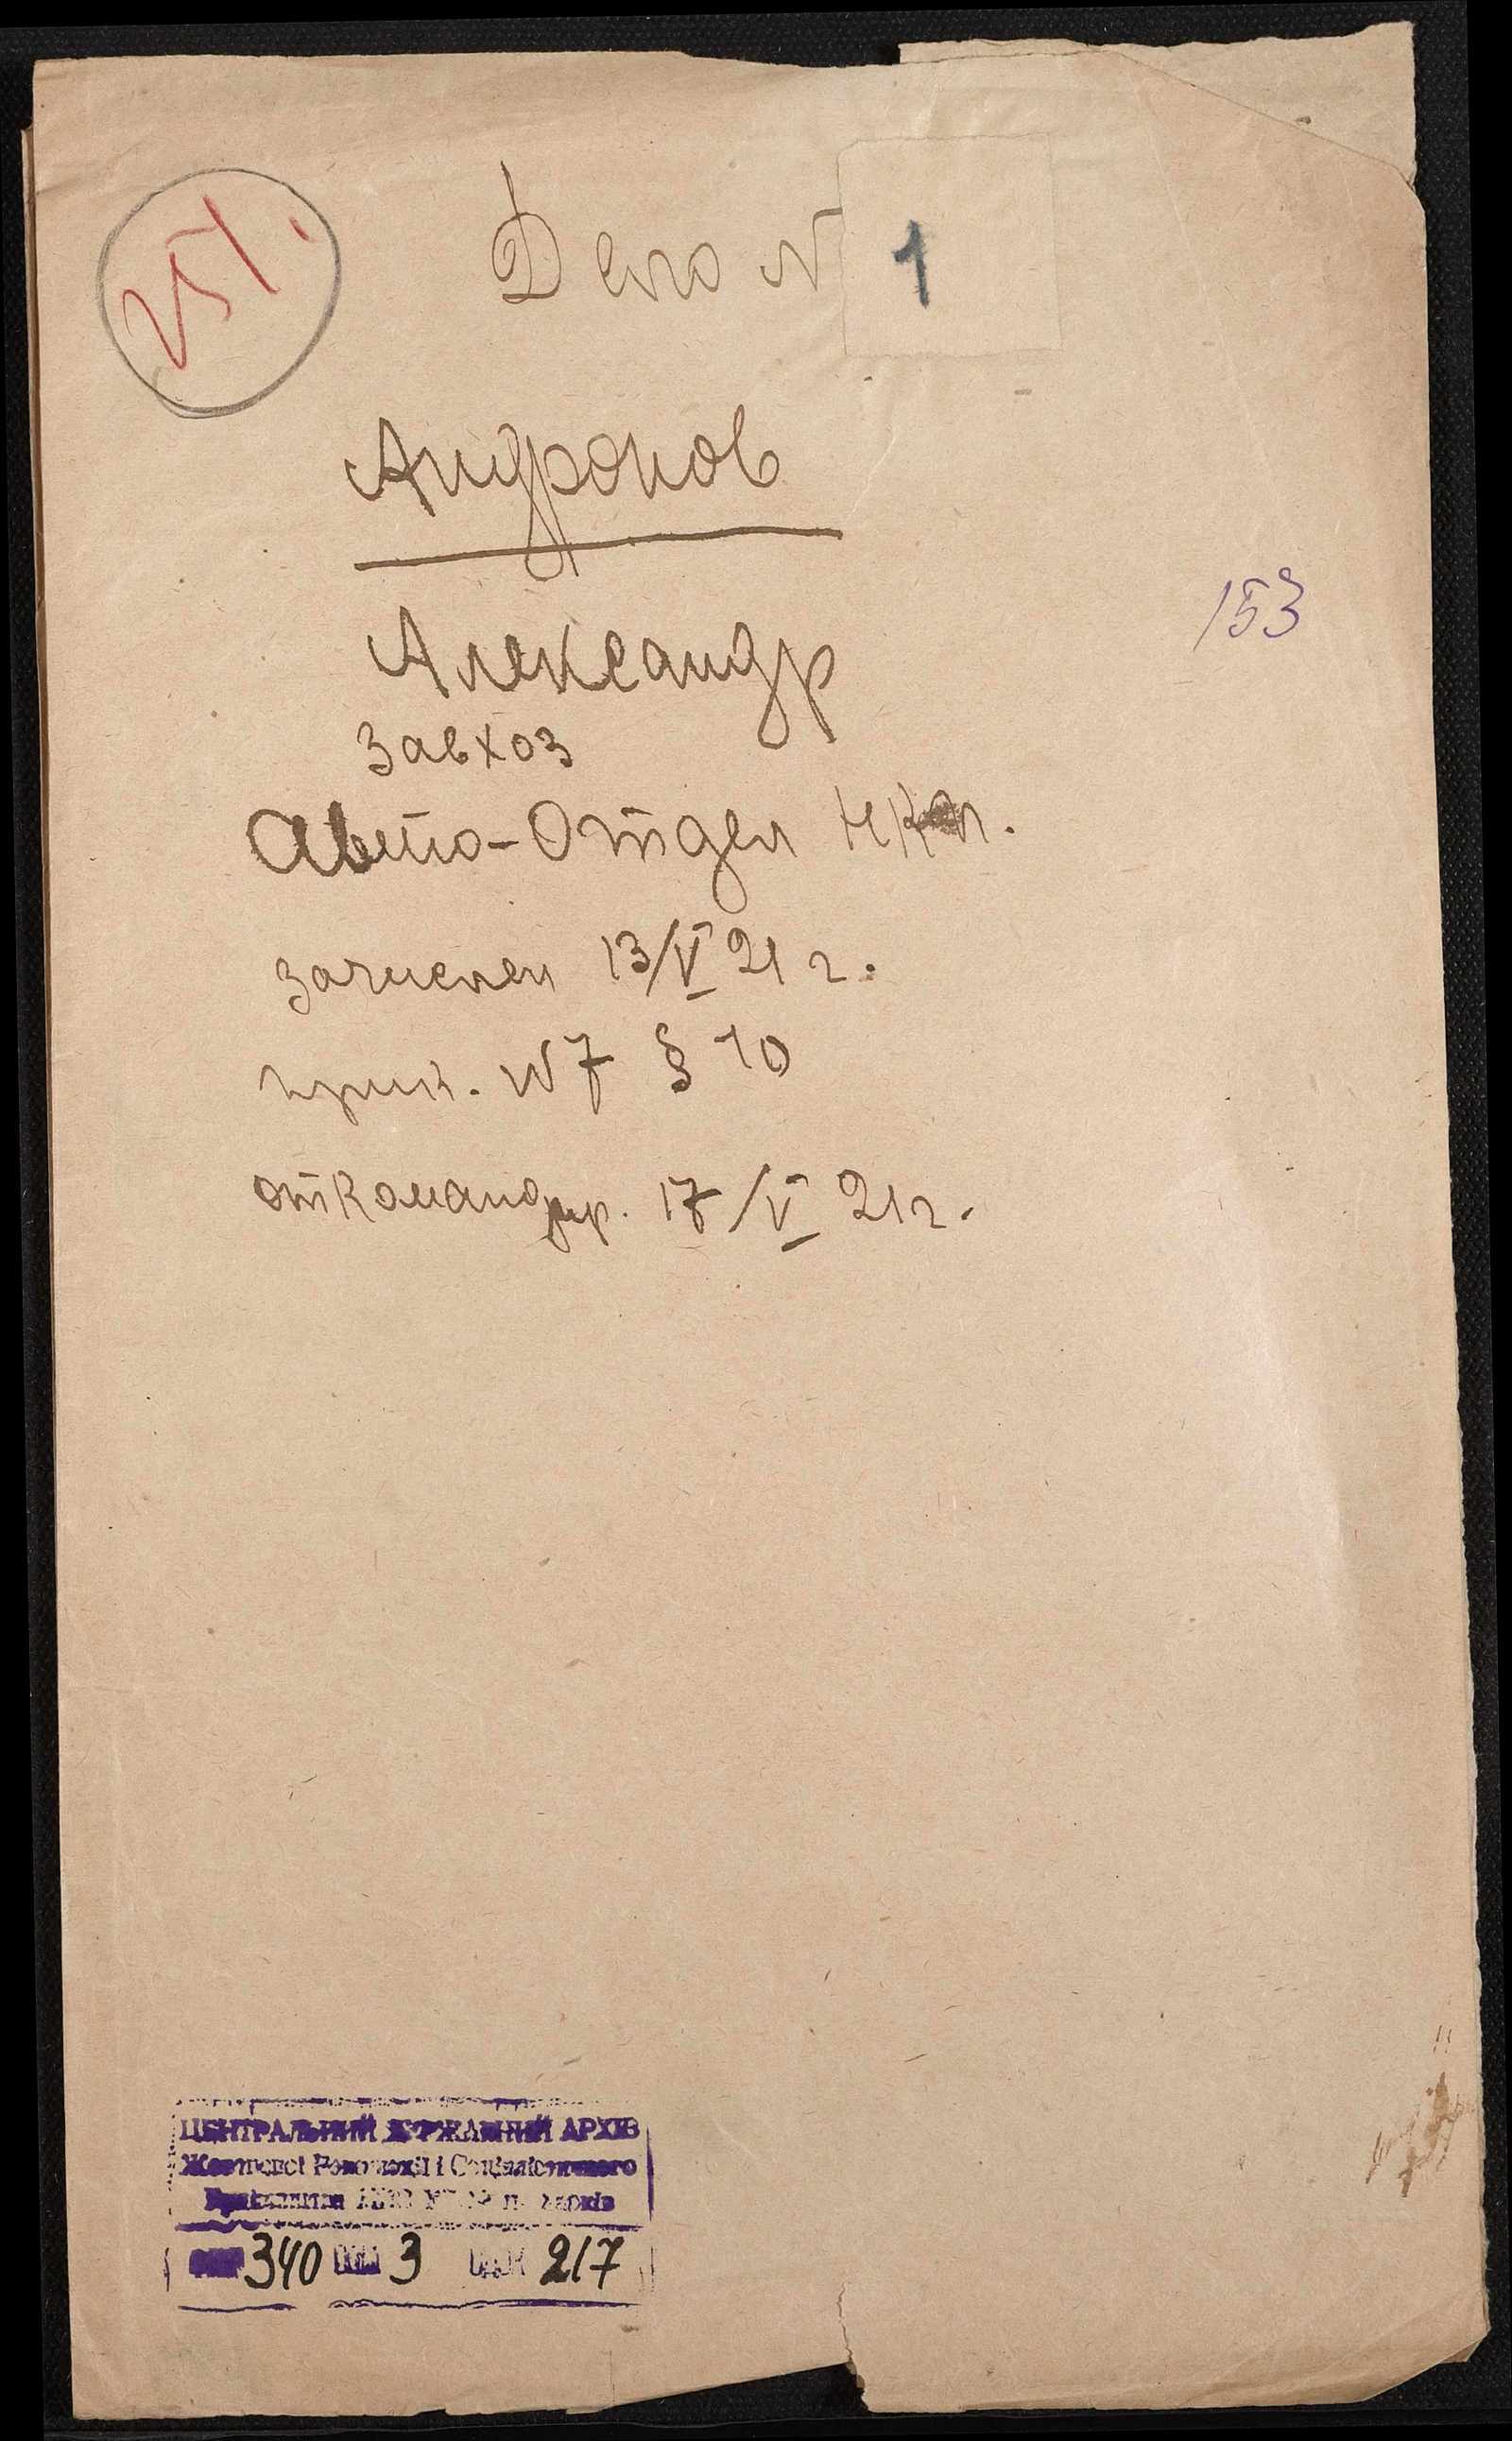 251.
Дело №
1
Андронов
153
Александр
завхоз
Авто-Отдел
зачислен 13/V 21 г.
прик. №7 § 10
откомандир. 17/V 21 г.
ЦЕНТРАЛЬНИЙ ДЕРЖАВНИЙ АРХІВ
Жовтневої Революції і Соціалістичного
340 3 217